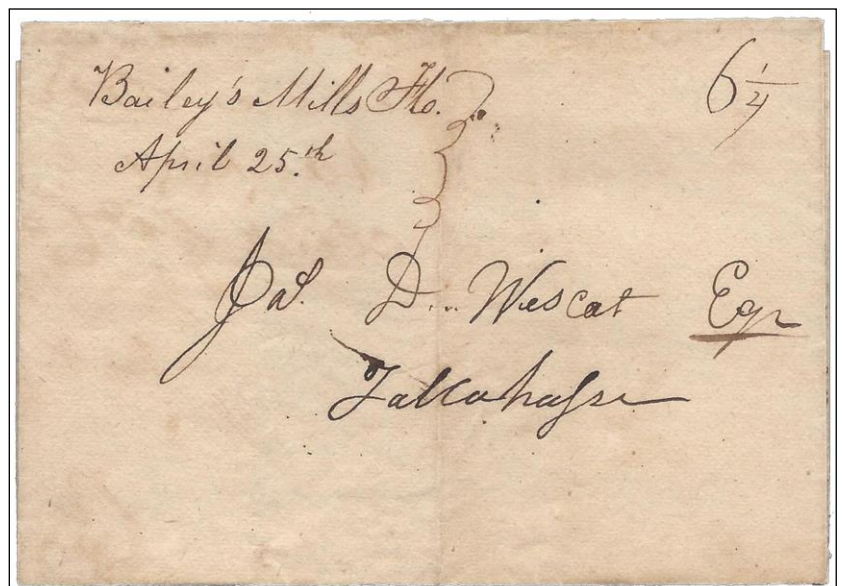 Bailey's Mills Fl. 6 1/4
April 25.th
Jas. D. Wescot Esqr
Tallahassee